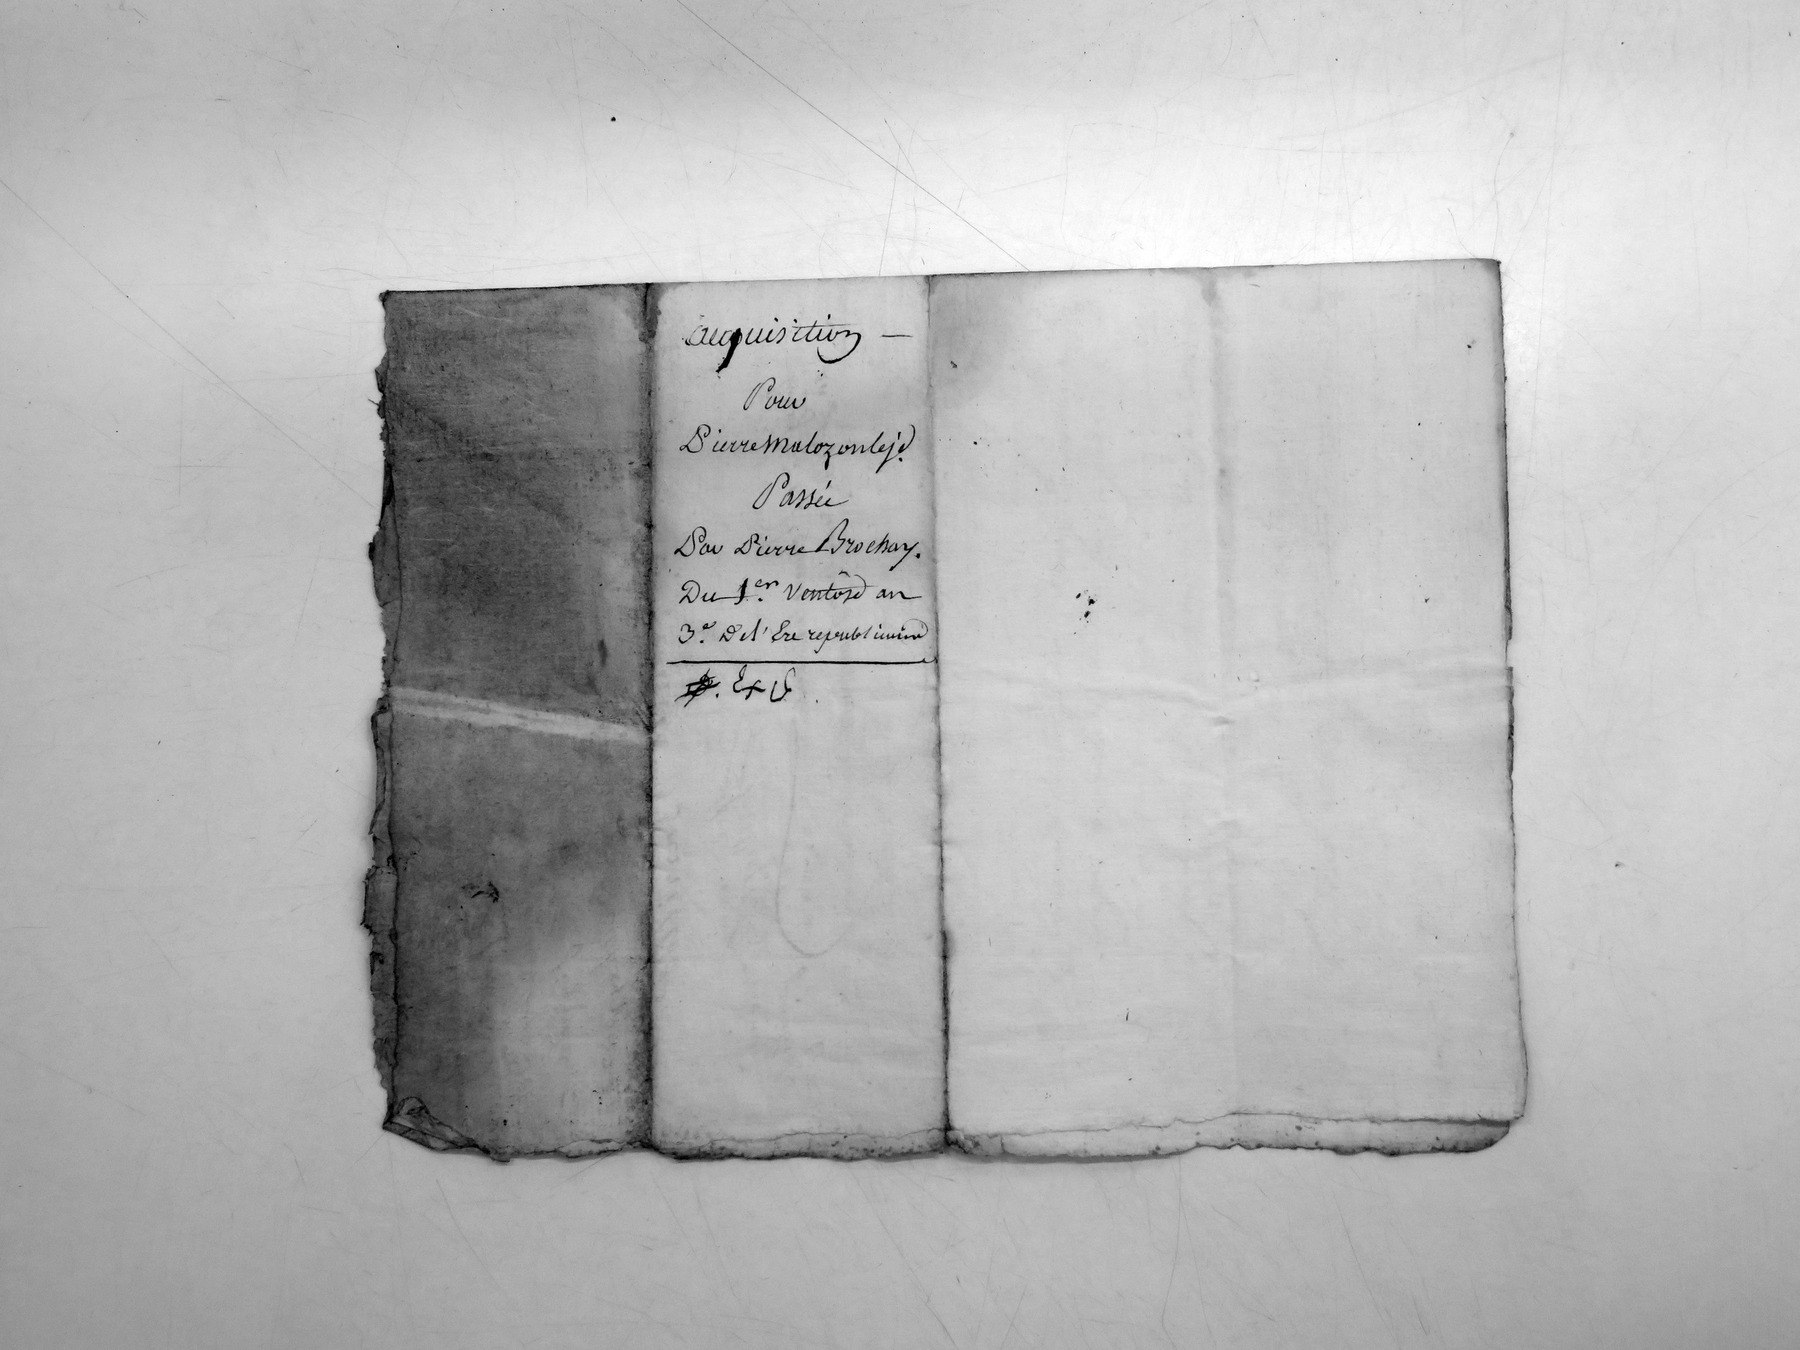 acquisition —
Pour
Pierre Malozon le j.e
Passée
Par Pierre Brochay.
Du 1.er Ventôse an
3.e De l'Ere republicaine